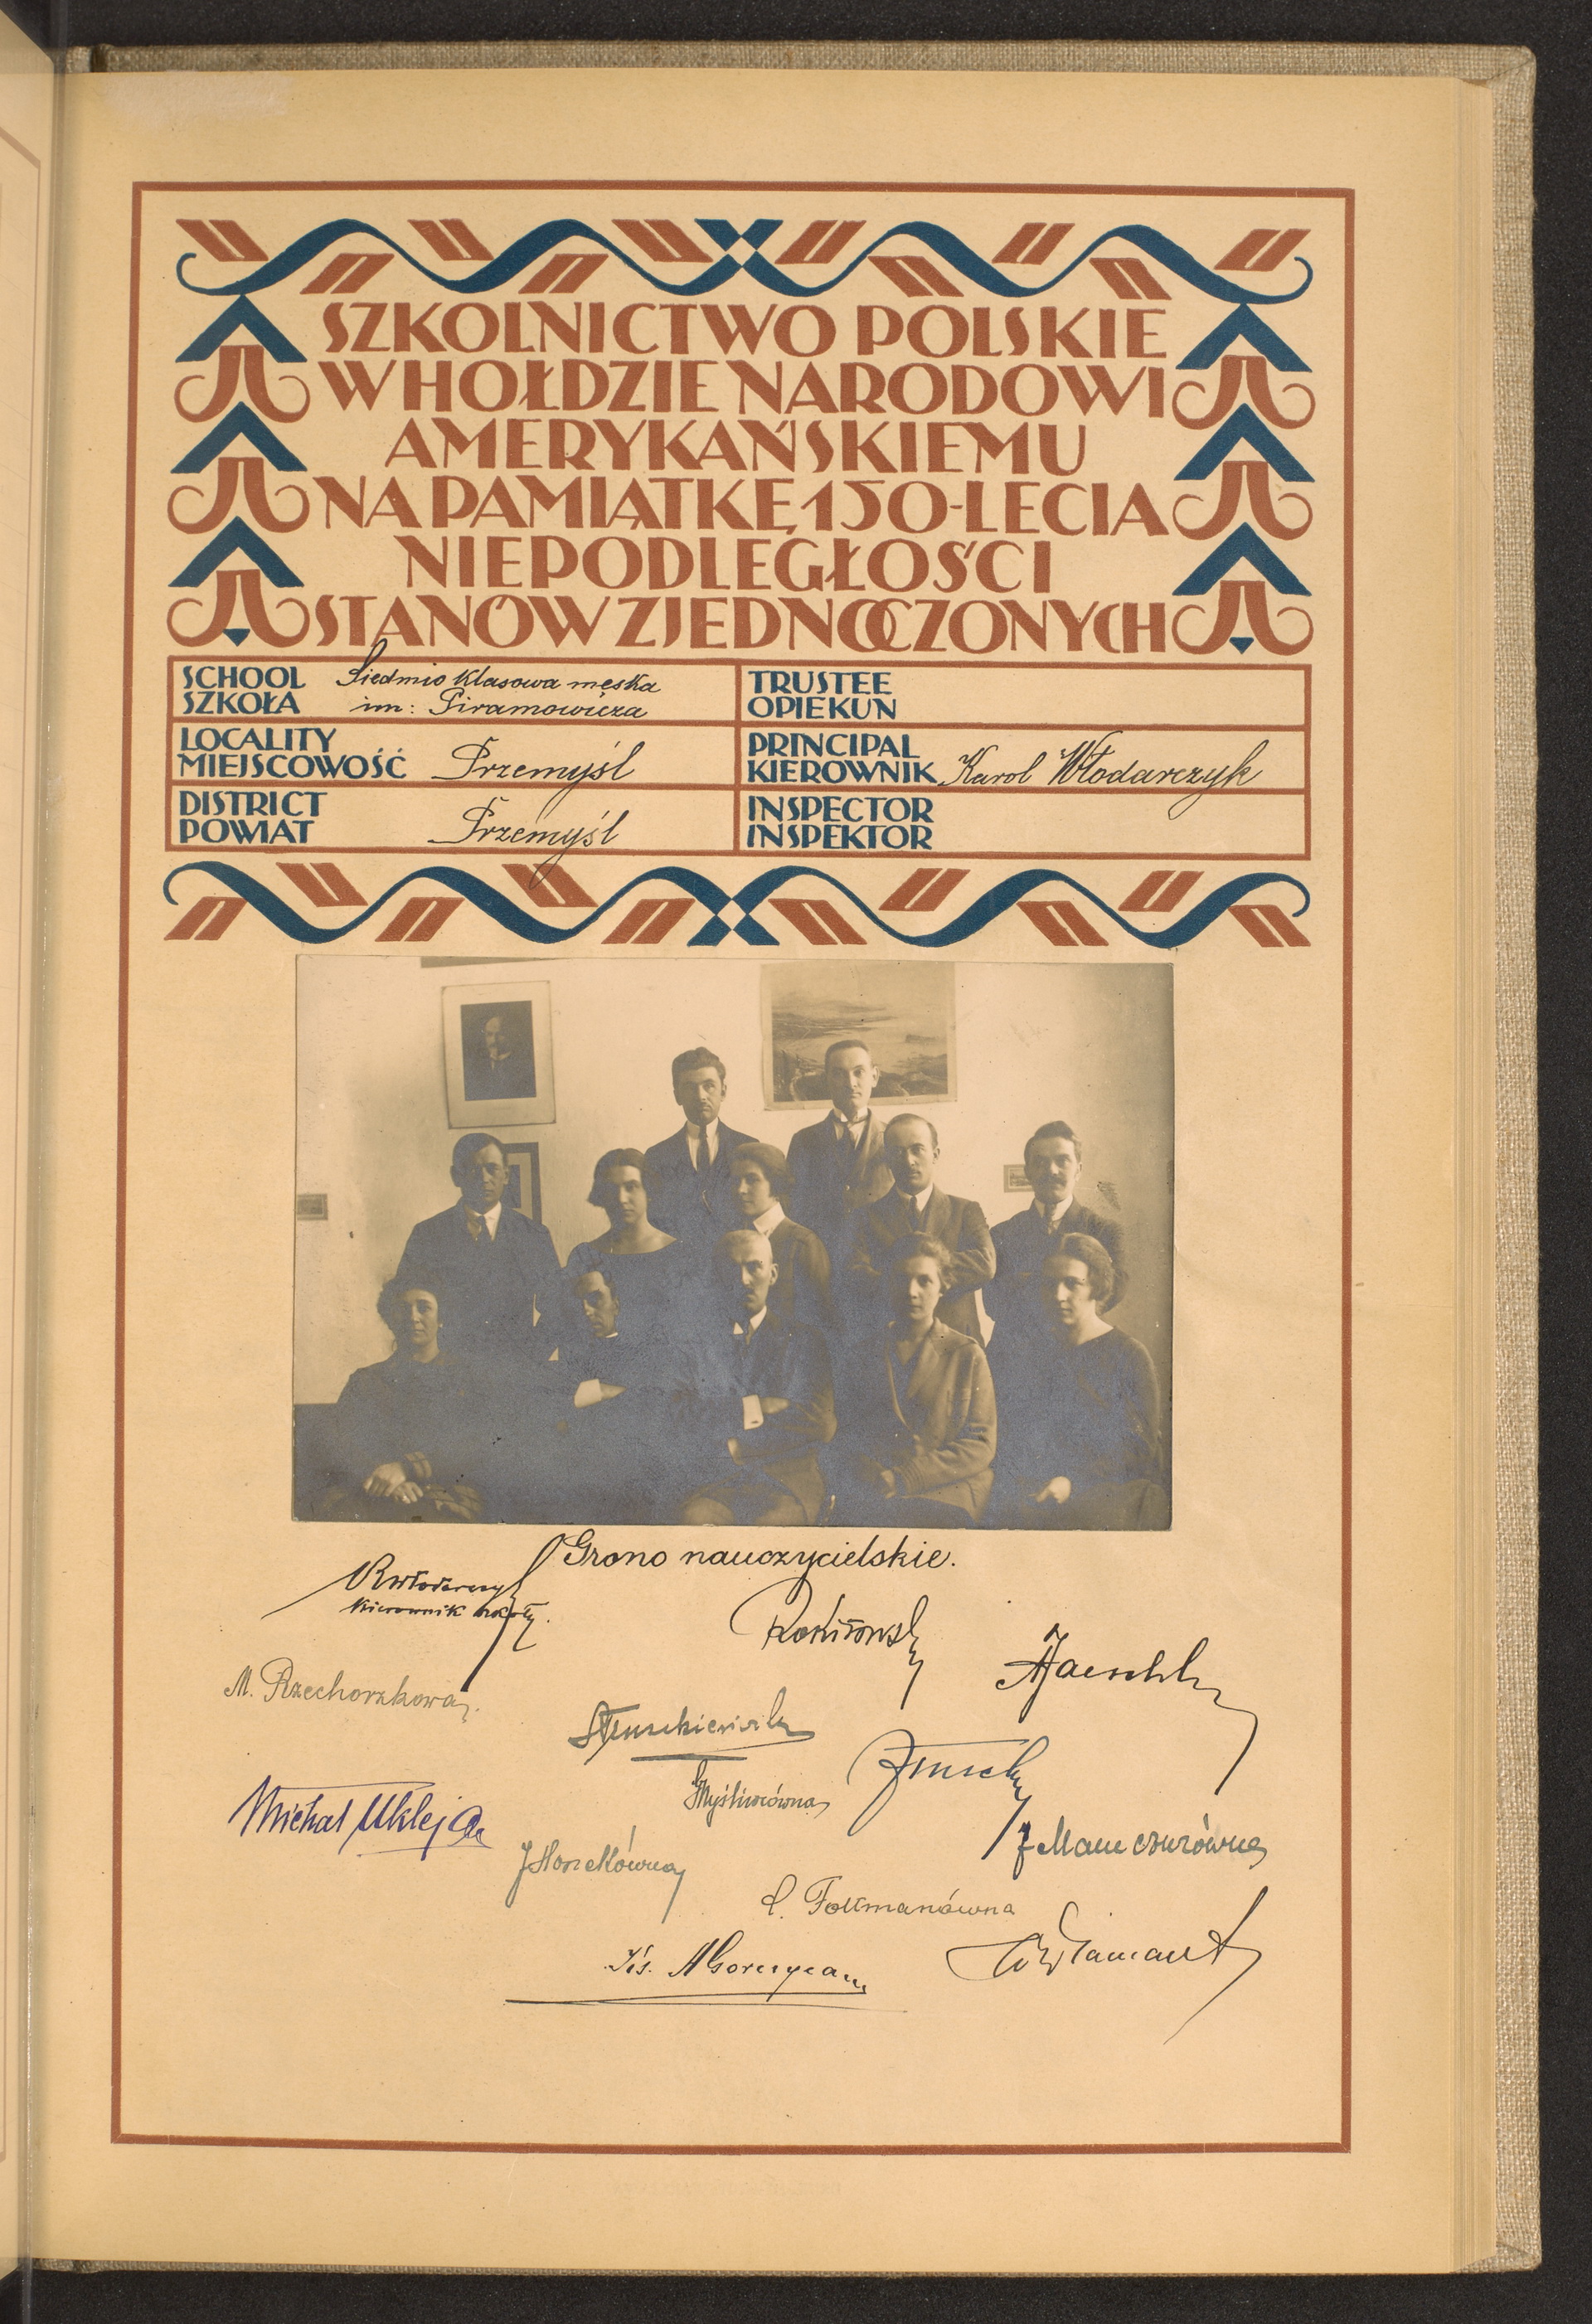 SZKOLNICTWO POLSKIE
W HOŁDZIE NARODOWI
AMERYKAŃSKIEMU
NA PAMIĄTKĘ 150-LECIA
NIEPODLEGŁOŚCI
STANÓW ZJEDNOCZONYCH
SCHOOL
SZKOŁA
Siedmio klasowa męska
im: Piramowicza
TRUSTEE
OPIEKUN
LOCALITY
MIEJSCOWOŚĆ
Przemyśl
PRINCIPAL
KIEROWNIK
Karol Włodarczyk
DISTRICT
POWIAT
Przemyśl
INSPECTOR
INSPEKTOR
Grono nauczycielskie.
KWłodarczyk
kierownik szkoły.
M. Rzechorzkowa
Michał Ukleja
Myśliwcówna